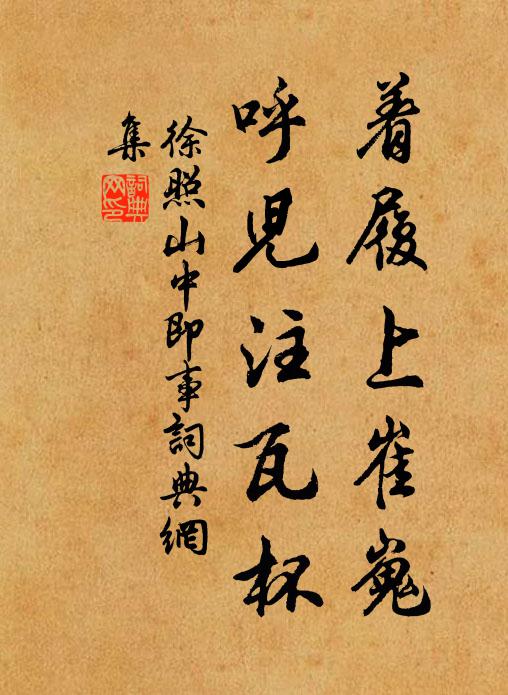 着履上崔嵬
呼児注瓦杯
徐照山中即事詞典網
集
詞典
网印